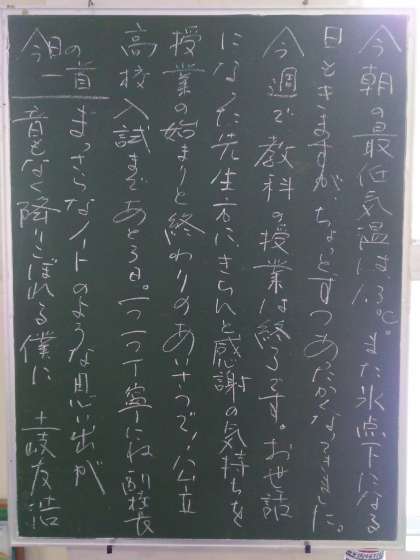 今朝の最低気温は、1.3℃。また氷点下になる
日もきますが、ちょっとずつあったかくなってきました。
今週で教科の授業は終了です。お世話
になった先生方にきちんと感謝の気持ちを
授業の始まりと終わりのあいさつで！公立
高校入試まであと3日。一つ一つ丁寧にね 副校長
今日の一首
まっさらなノートのような思い出が
音もなく降りこぼれる僕に 土岐友浩